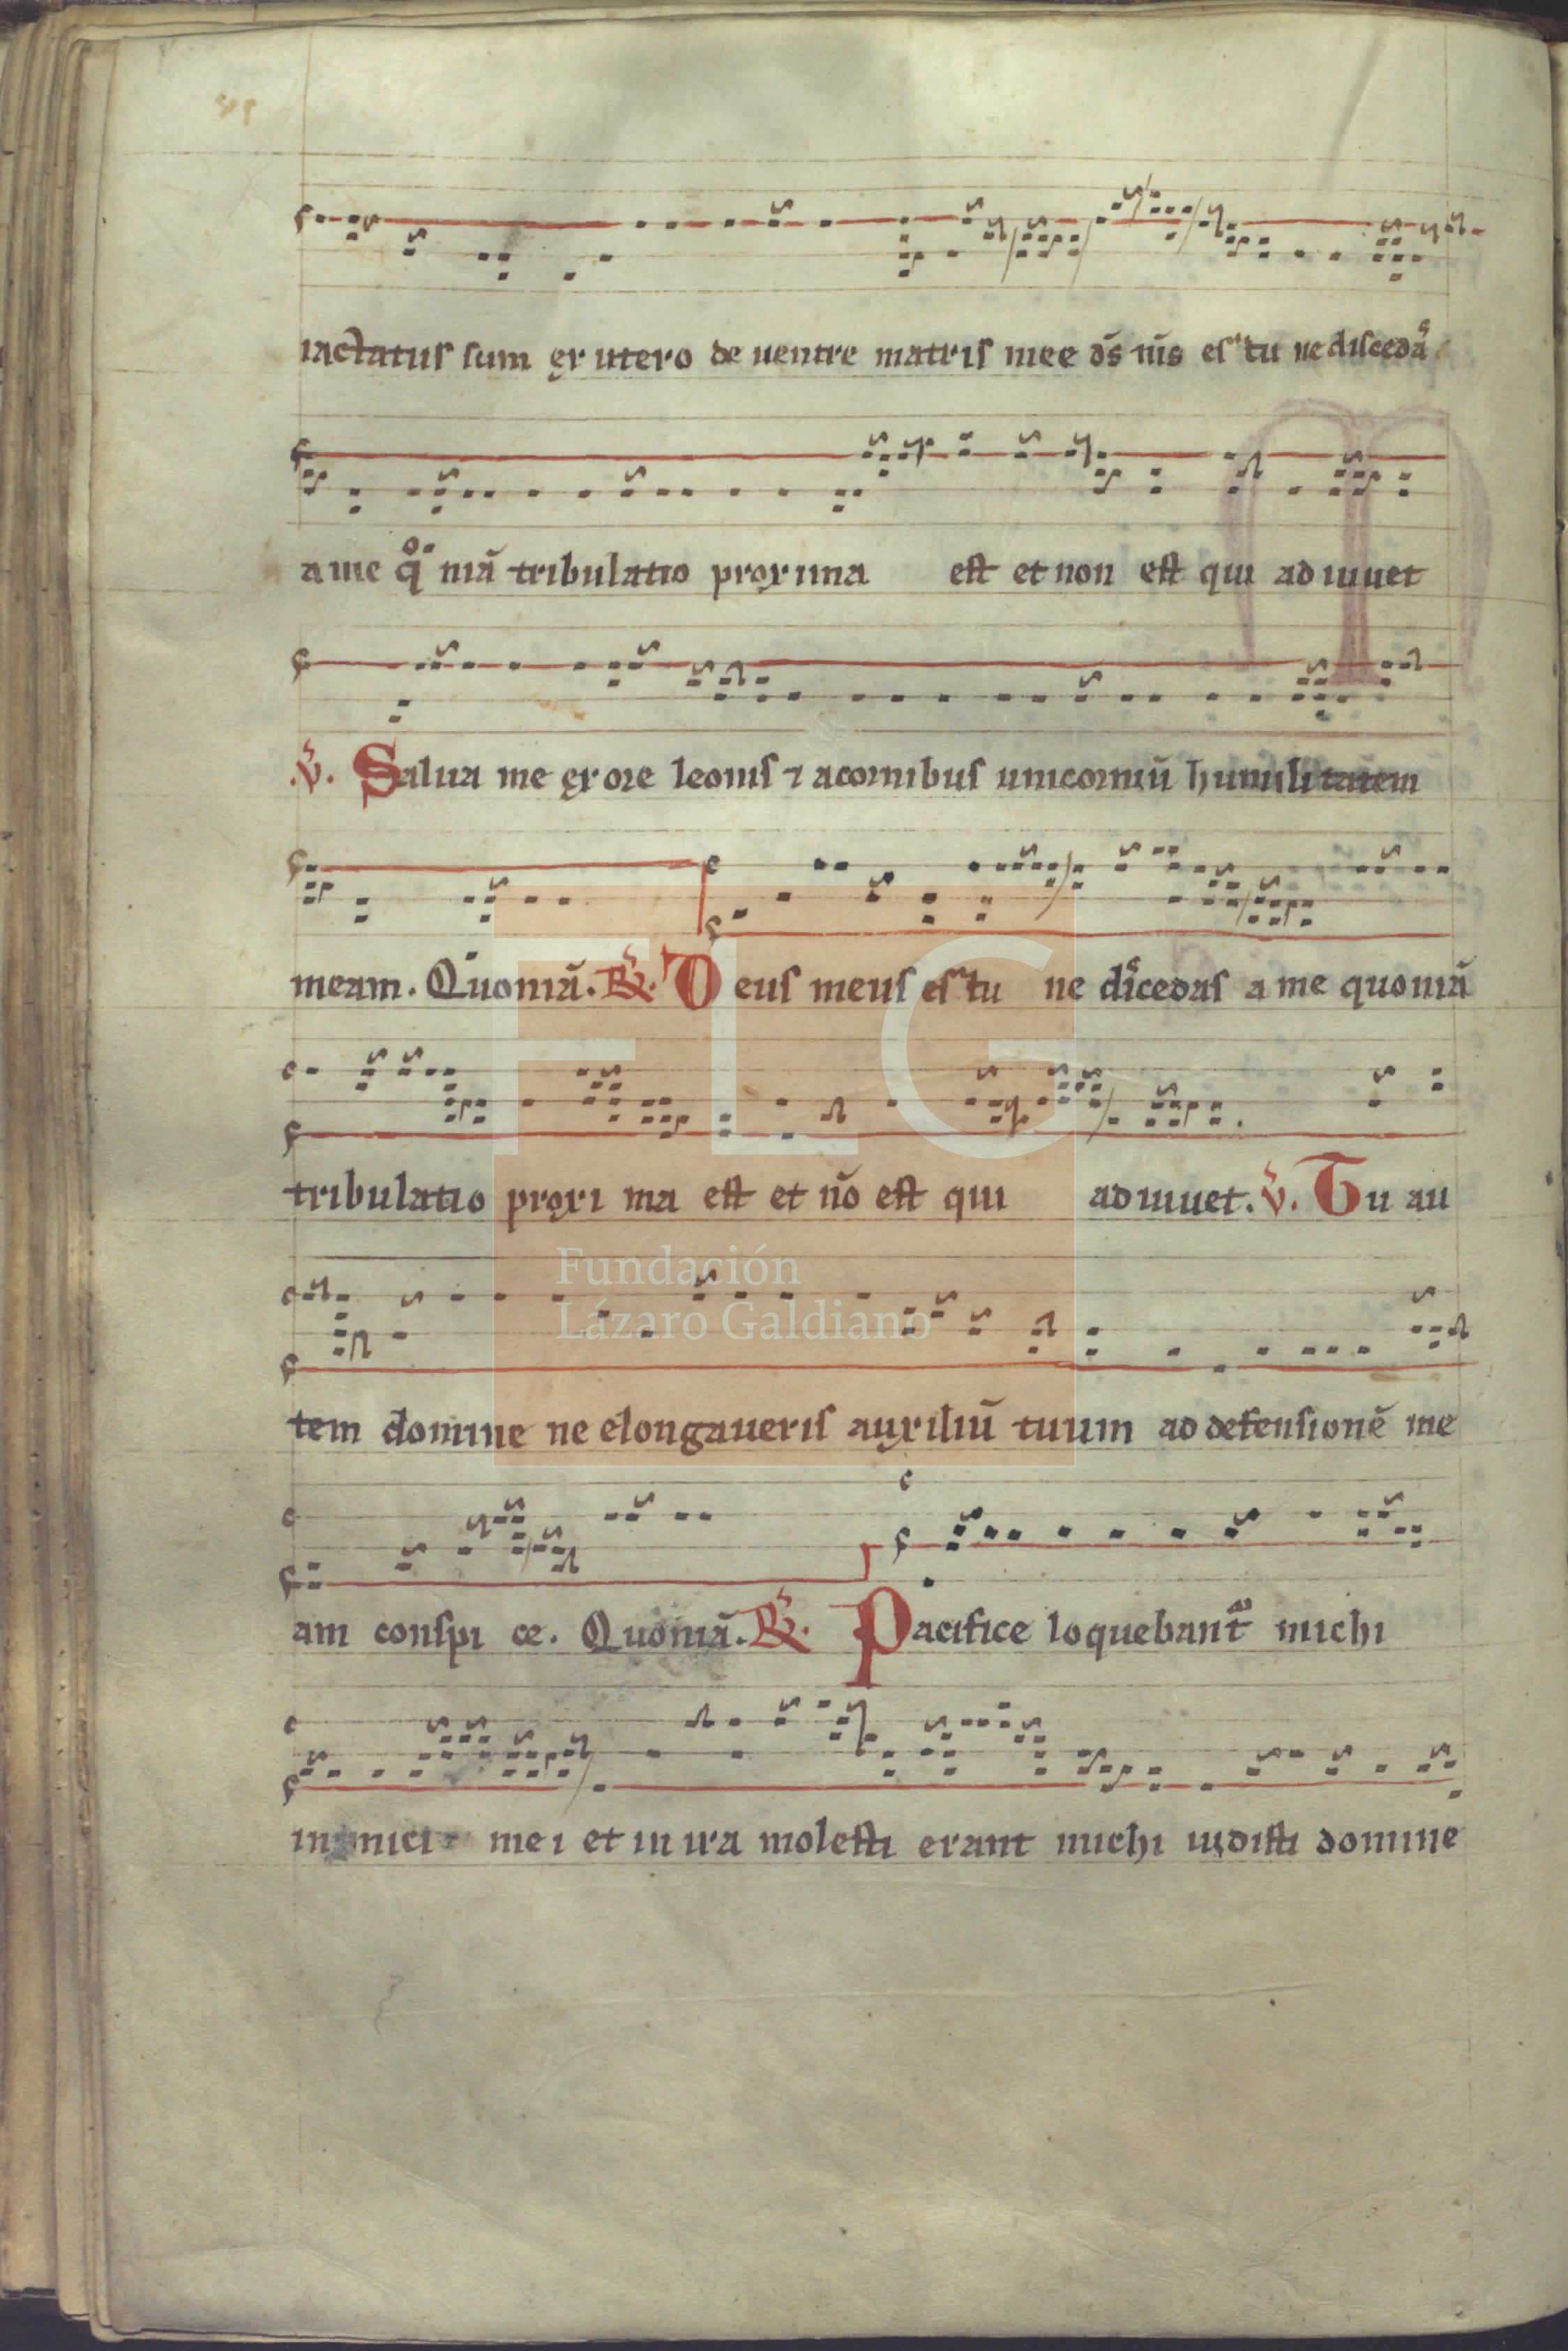 iactatus sum ex utero de uentre matris mee ds̄ ms̄ es tu ne discedas
a me qͦ niā tribulatio proxima est et non est qui adiuuet
℣. Salua me ex ore leonis ⁊ a cornibus unicorniū humilitatem
meam. Quoniā. ℟. Deus meus es tu ne discedas a me quoniā
tribulatio proxi ma est et nō est qui adiuuet. ℣. Tu au
tem domine ne elongaueris auxiliū tuum ad defensionē me
am conspi ce. Quoniā. ℟. Pacifice loquebant᷑ michi
inimici mei et in ira molesti erant michi uidisti domine
FLG
Fundación
Lázaro Galdiano